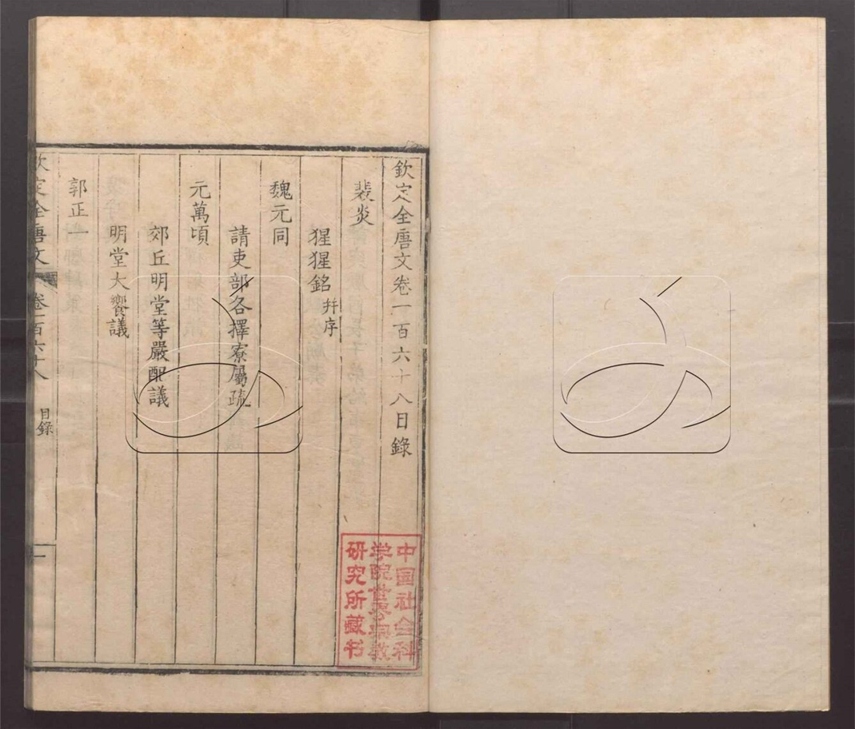 欽定全唐文卷一百六十八目錄
裴炎
猩猩銘并序
魏元同
請吏部各擇寮屬疏
元萬頃
郊丘明堂等嚴配議
明堂大饗議
郭正一
欽定全唐文 卷一百六十八 目錄 一
中国社会科
学院世界宗教
研究所藏书